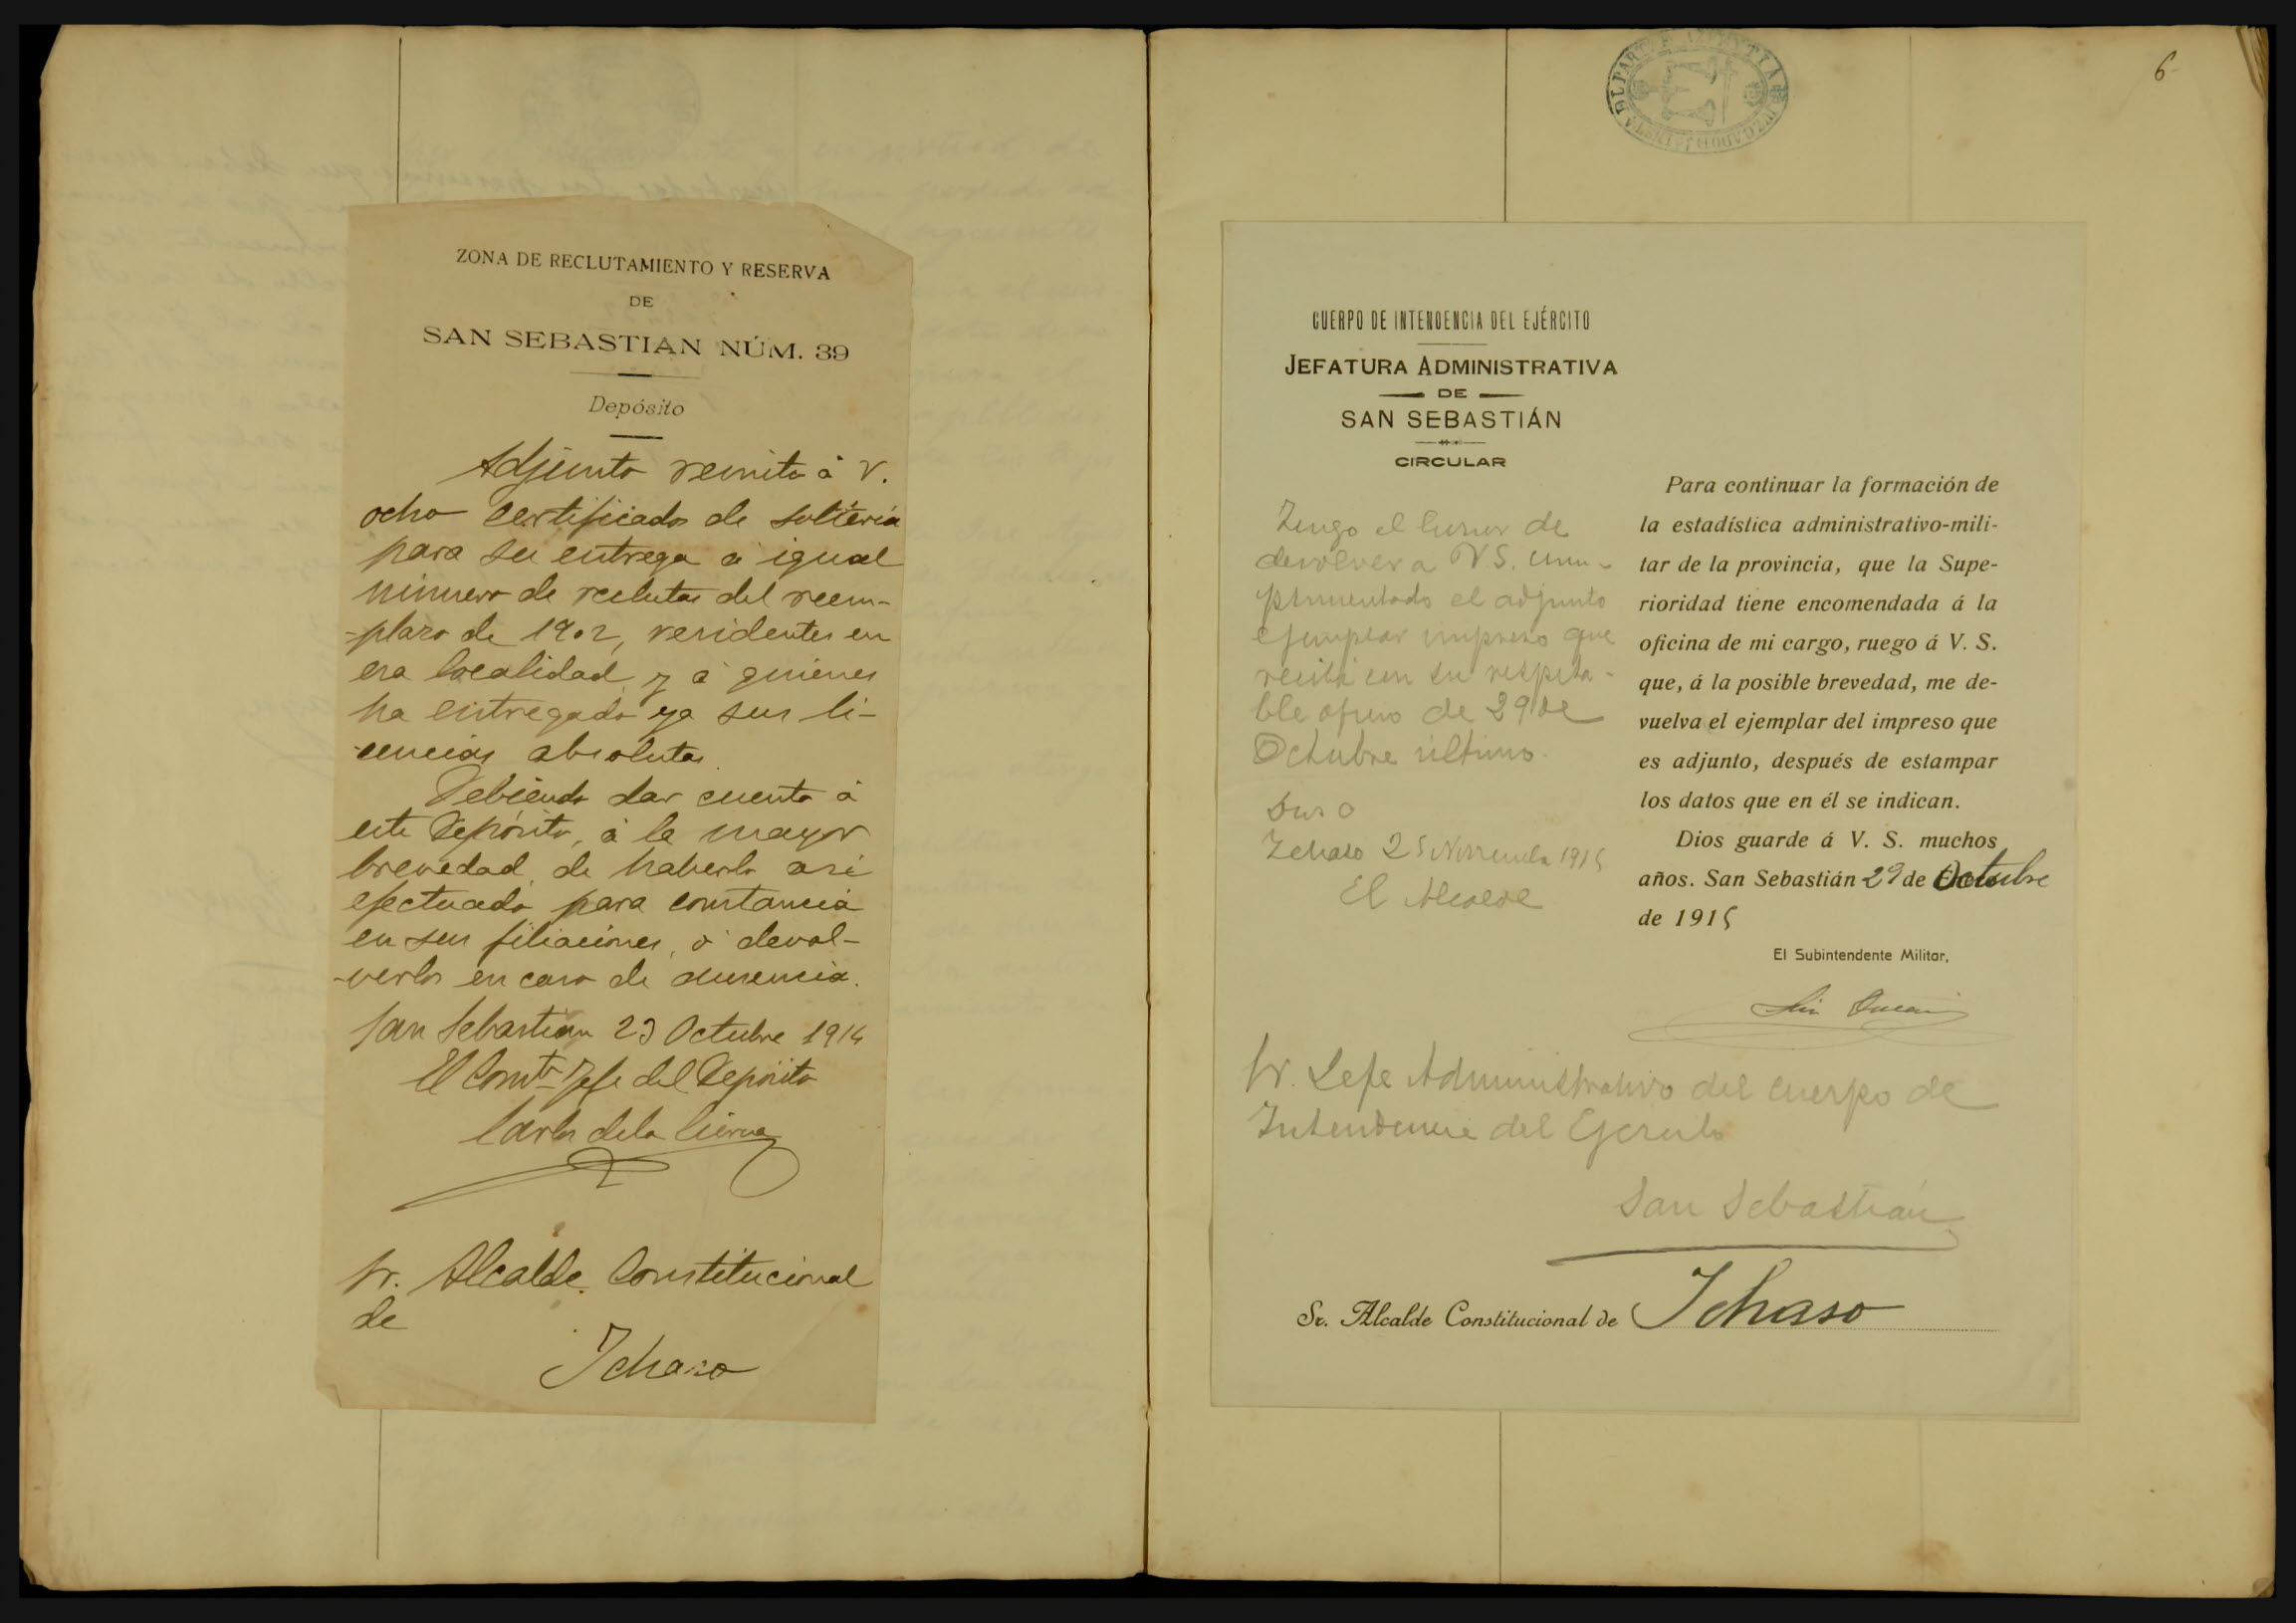 ZONA DE RECLUTAMIENTO Y RESERVA
DE
SAN SEBASTIAN NÚM. 39
Depósito
Adjunto remito á V.
ocho certificados de soltería
para su entrega á igual
número de reclutas del reem-
-plazo de 1902, residentes en
esa localidad y á quienes
ha entregado ya sus li-
-cencias absolutas.
Debiendo dar cuenta á
este Depósito, á la mayor
brevedad, de haberlo asi
efectuado para constancia
en sus filiaciones, ó devol-
-verlos en caso de ausencia.
San Sebastian 23 Octubre 1914
El Comte Jefe del Depósito
Carlos de la Cierva
Sr. Alcalde Constitucional
de
Ichaso
6
CUERPO DE INTENDENCIA DEL EJÉRCITO
JEFATURA ADMINISTRATIVA
DE
SAN SEBASTIÁN
CIRCULAR
Tengo el honor de
devolver a V.S. cum-
plimentado el adjunto
ejemplar impreso que
recibí con su respeta-
ble oficio de 29 de
Octubre último.
Ichaso 25 Noviembre 1915
El Alcalde
Para continuar la formación de
la estadística administrativo-mili-
tar de la provincia, que la Supe-
rioridad tiene encomendada á la
oficina de mi cargo, ruego á V. S.
que, á la posible brevedad, me de-
vuelva el ejemplar del impreso que
es adjunto, después de estampar
los datos que en él se indican.
Dios guarde á V. S. muchos
años. San Sebastián 29 de Octubre
de 1915
El Subintendente Militar,
Sr. Jefe Administrativo del cuerpo de
Intendencia del Ejercito
San Sebastián
Sr. Alcalde Constitucional de Ichaso